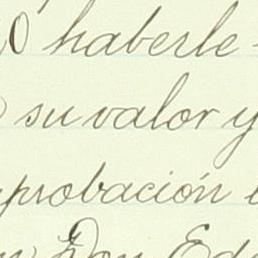 haberle
su valor y
probación
Don